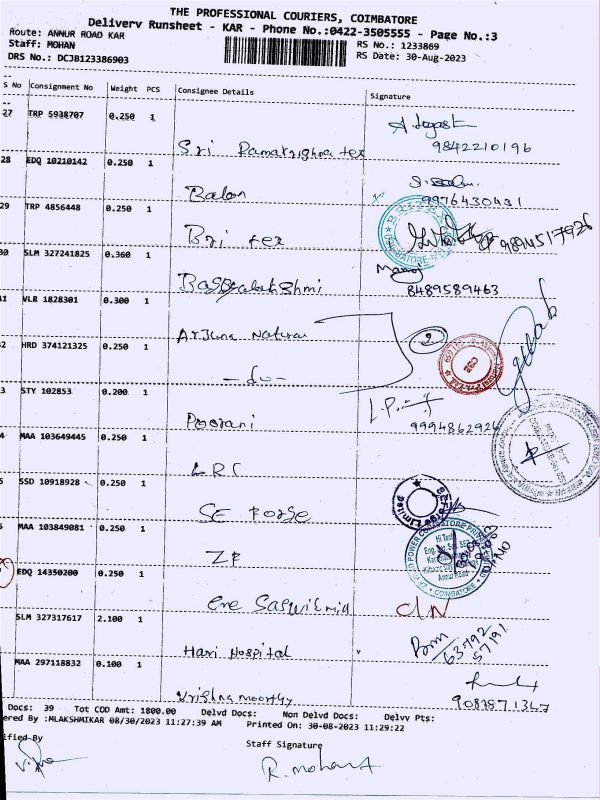 THE PROFESSIONAL COURIERS, COIMBATORE
Delivery Runsheet - KAR - Phone No.:0422-3505555 - Page No.:3
Route: ANNUR ROAD KAR
Staff: MOHAN RS No.: 1233869
DRS No.: DCJB123386903 RS Date: 30-Aug-2023
S No Consignment No Weight PCS Consignee Details Signature
27 TRP 5938707 0.250 1
Sri Ramakrishna tex 9842210196
28 EDQ 10210142 0.250 1
Balan 9976430431
29 TRP 4856448 0.250 1
Bri tex 9894517926
30 SLM 327241825 0.360 1 Manoj
8489589463
1 VLR 1828301 0.300 1
Arjuna Natural
2 HRD 374121325 0.250 1 2
-do-
3 STY 102853 0.200 1 L.P.
Poorani 9994862926
4 MAA 103649445 0.250 1
LRC
5 SSD 10918928 0.250 1
SE Forge
MAA 103849081 0.250 1
ZF
EDQ 14350200 0.250 1
CIN
SLM 327317617 2.100 1
Hari Hospital 63792
57191
MAA 297118832 0.100 1
Krishna moorthy
Docs: 39 Tot COD Amt: 1800.00 Delvd Docs: Non Delvd Docs: Delvv Pts:
ered By :MLAKSHMIKAR 08/30/2023 11:27:39 AM Printed On: 30-08-2023 11:29:22
ified By Staff Signature
R. mohan